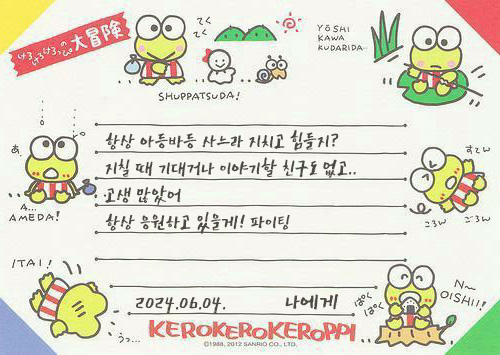 けろけろけろっぴの大冒険
てくてく
SHUPPATSUDA!
YŌSHI
KAWA
KUDARIDA..
항상 아등바등 사느라 지치고 힘들지?
지칠 때 기대거나 이야기할 친구도 없고..
고생 많았어
항상 응원하고 있을게! 파이팅
あ.
A...
AMEDA!
すてん
ころん
ごろん
ITAI!
う...
2024.06.04. 나에게
ぱく
ぱく
N~
OISHII!!
KEROKEROKEROPPI
©1988, 2012 SANRIO CO., LTD.